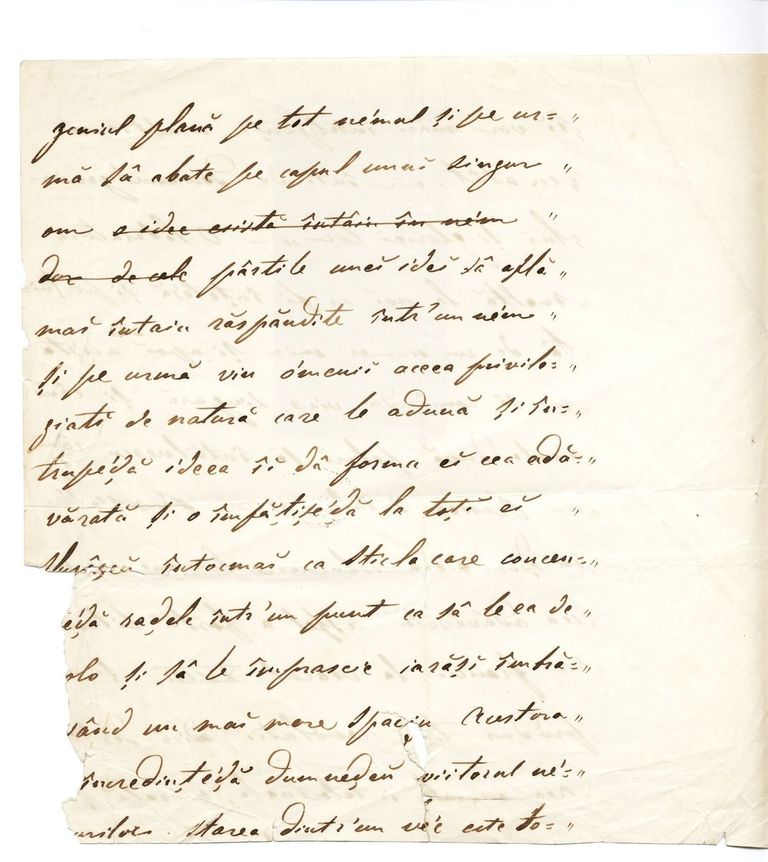 geniul plană pe tot némul și pe ur= „
mă să abate pe capul unuĭ singur „
om o idee esistă întâiu în ném „
dar de cele părțile uneĭ ideĭ să află „
maĭ întaiu răspăndite într'un ném „
și pe urmă vin ómenii aceea privile= „
giatĭ de natură care le adună și în= „
trupéḑă ideea îĭ dă forma eĭ cea adă= „
vărată și o împfățișéḑă la toțĭ eĭ „
slujéscŭ întocmaĭ ca sticla care concen= „
éḑă raḑele într'un punt ca să le ea de „
olo și să le împrascie iarăși îmbră= „
ând un maĭ mare spaçiu Acestora „
încredințéḑă dumneḑeŭ viitorul né= „
urilor. Starea dintr'un véc este to= „